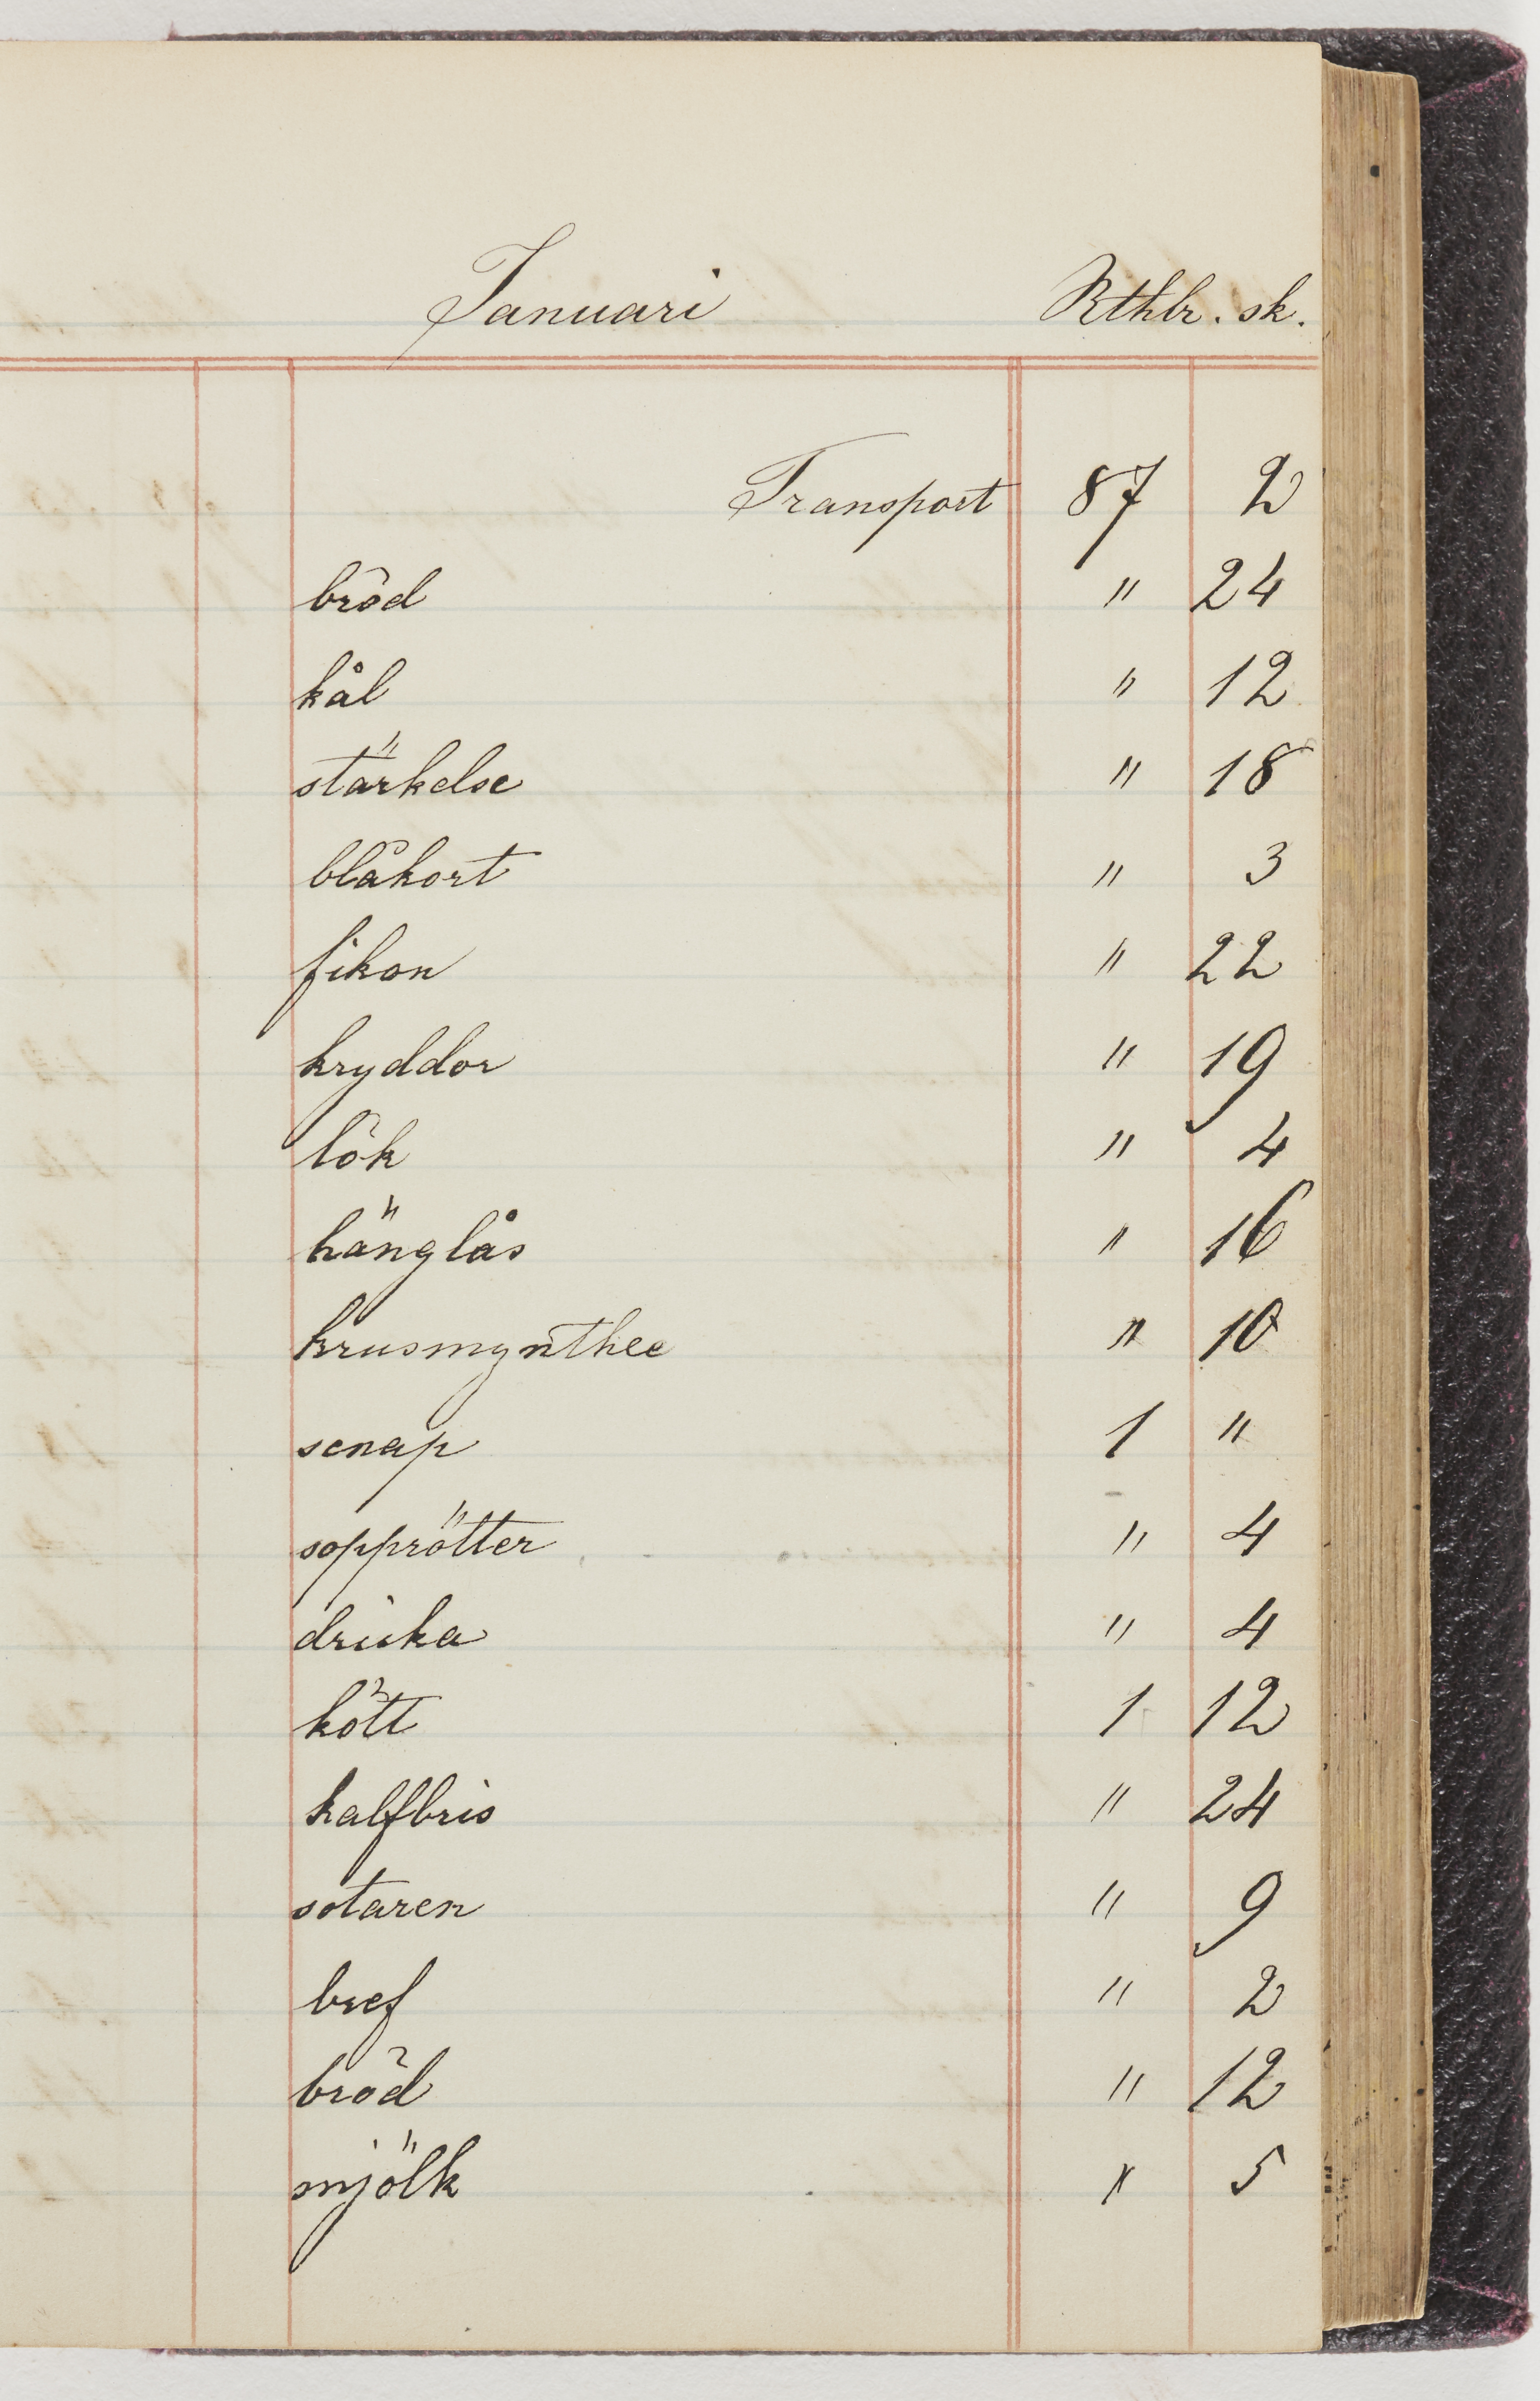 Januari Rthlr. sk.
Transport 87 2
bröd " 24
kål " 12
stärkelse " 18
blåkort " 3
fikon " 22
kryddor " 19
lök " 4
hänglås " 16
krusmynthee " 10
senap 1 "
sopprötter " 4
dricka " 4
kött 1 12
kalfbris " 24
sotaren " 9
bref " 2
bröd " 12
mjölk " 5